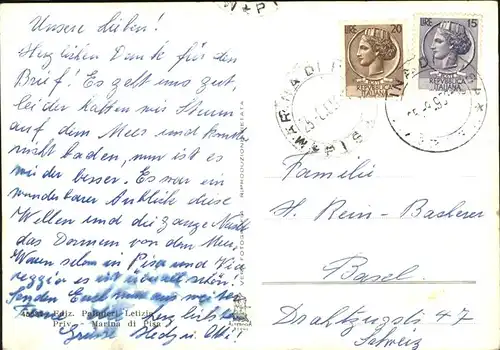 Unsere Lieben!
Herzlichen Dank für den
Brief! Es geht uns gut,
leider hatten wir Sturm
auf dem Meer und konnten
nicht baden, nun ist es
wieder besser. Es war ein
wunderbarer Anblick diese
Wellen und die ganze Nacht
das Donnern von dem Meer,
Waren schon in Pisa und Via
reggio es ist überall schön!
Senden Euch nun weiter
herzlichste
Grüsse
Ediz. Palmieri Letizia
Priv. - Marina di Pisa
VERA FOTOGRAFIA RIPRODUZIONE VIETATA
LIRE 20
REPUBBLICA
ITALIANA
LIRE 15
REPUBBLICA
ITALIANA
MARINA DI
PISA
Familie
H. Rein-Basherer
Basel
Drahtzugstr 47
Schweiz